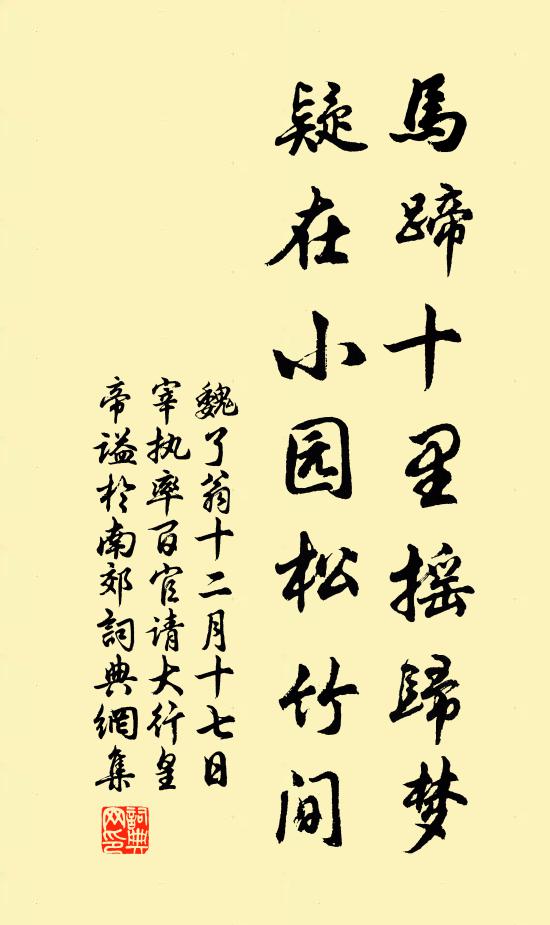 馬蹄十里摇歸梦
疑在小园松竹间
魏了翁十二月十七日
宰执率百官请大行皇
帝谥於南郊詞典網集
詞典网印